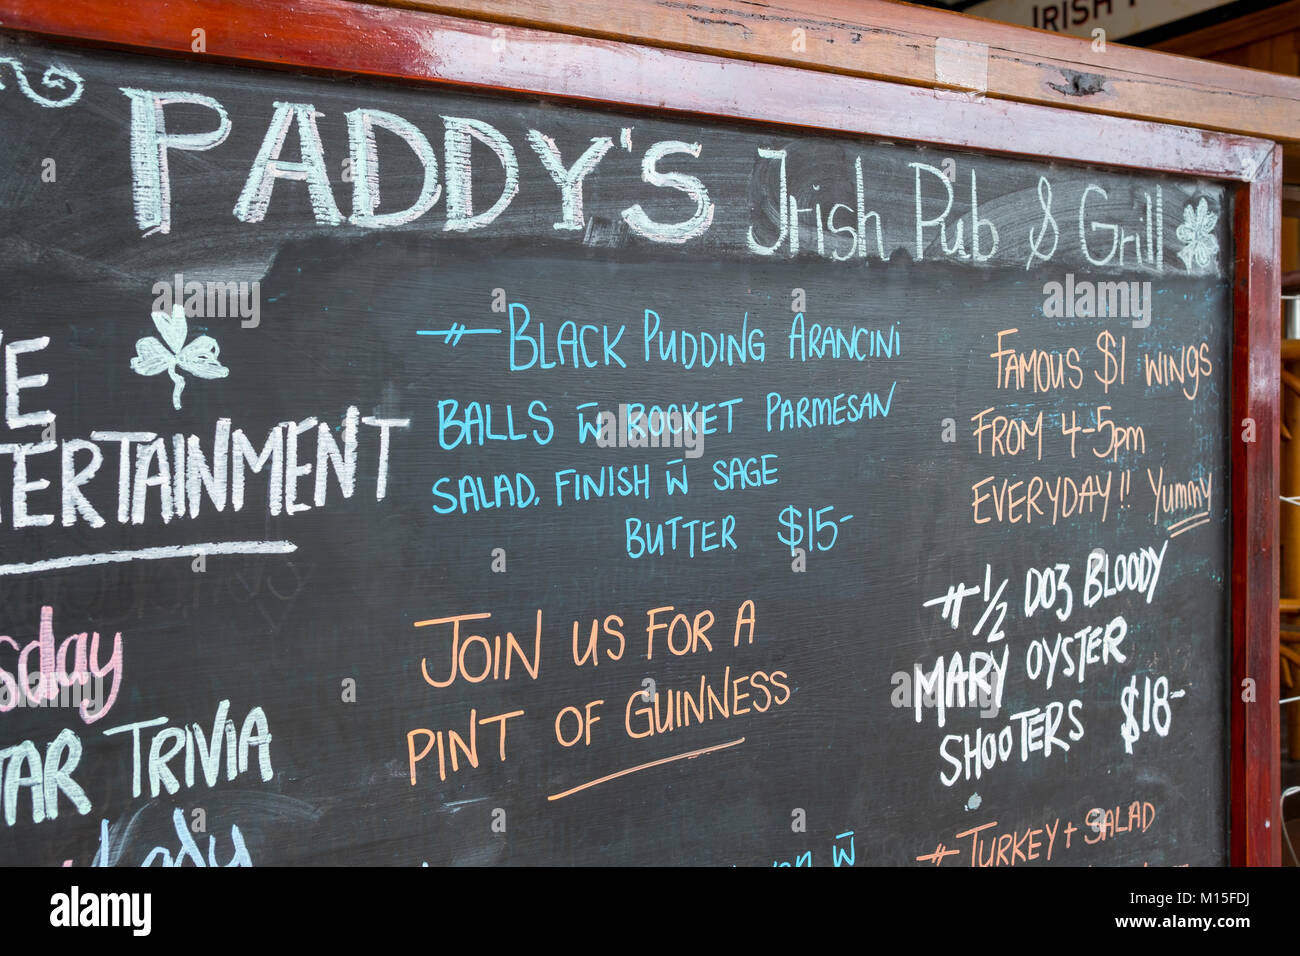 IRISH
PADDY'S Irish Pub & Grill
BLACK PUDDING ARANCINI
BALLS w̄ ROCKET PARMESAN
SALAD, FINISH w̄ SAGE
BUTTER $15-
FAMOUS $1 WINGS
FROM 4-5pm
EVERYDAY!! Yummy
VE
TERTAINMENT
sday
TAR TRIVIA
Lady
JOIN US FOR A
PINT OF GUINNESS
# 1/2 DOZ BLOODY
MARY OYSTER
SHOOTERS $18-
w̄
TURKEY + SALAD
alamy
Image ID: M15FDJ
www.alamy.com